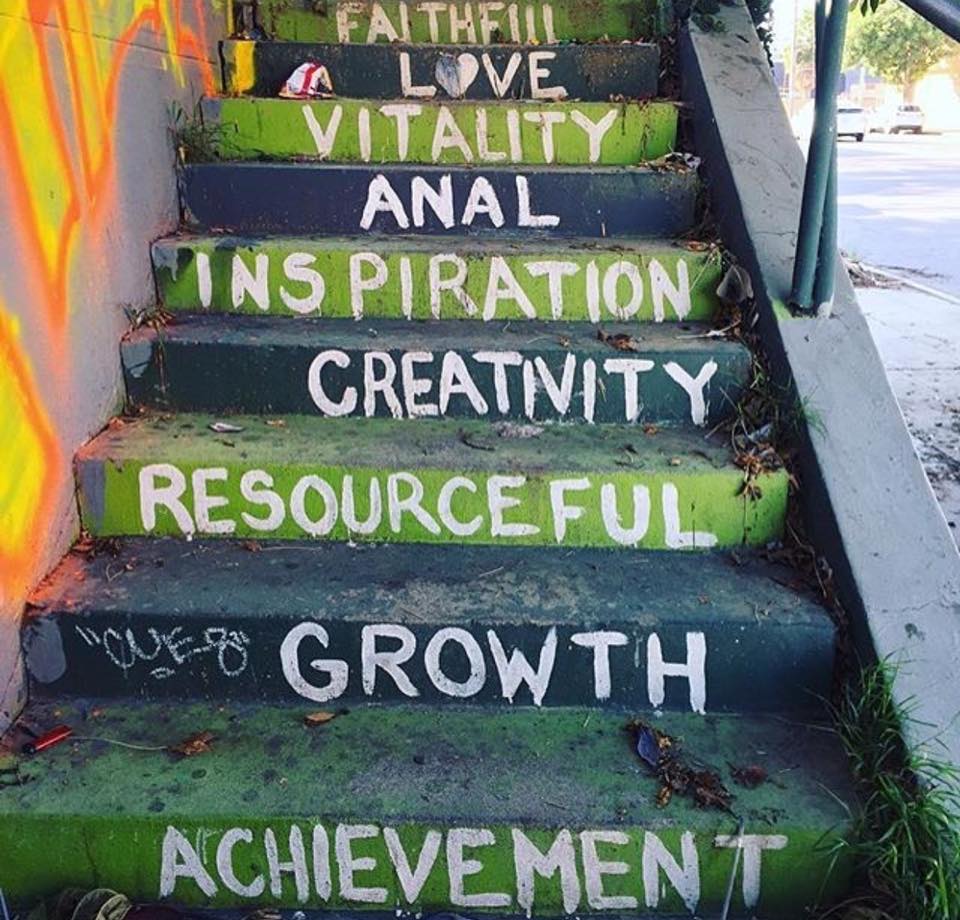 FAITHFUL
LOVE
VITALITY
ANAL
INSPIRATION
CREATIVITY
RESOURCEFUL
GROWTH
ACHIEVEMENT